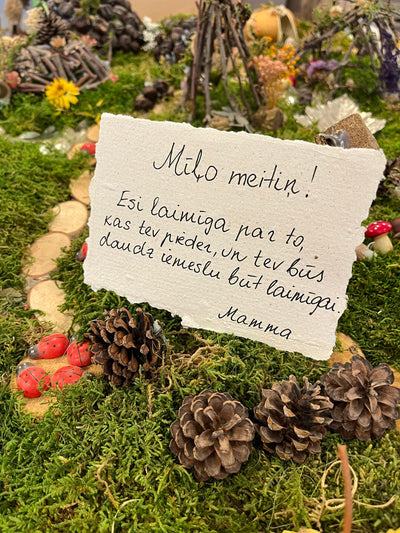 Mīļo meitiņ!
Esi laimīga par to,
kas tev pieder, un tev būs
daudz iemeslu būt laimīgai.
Mamma